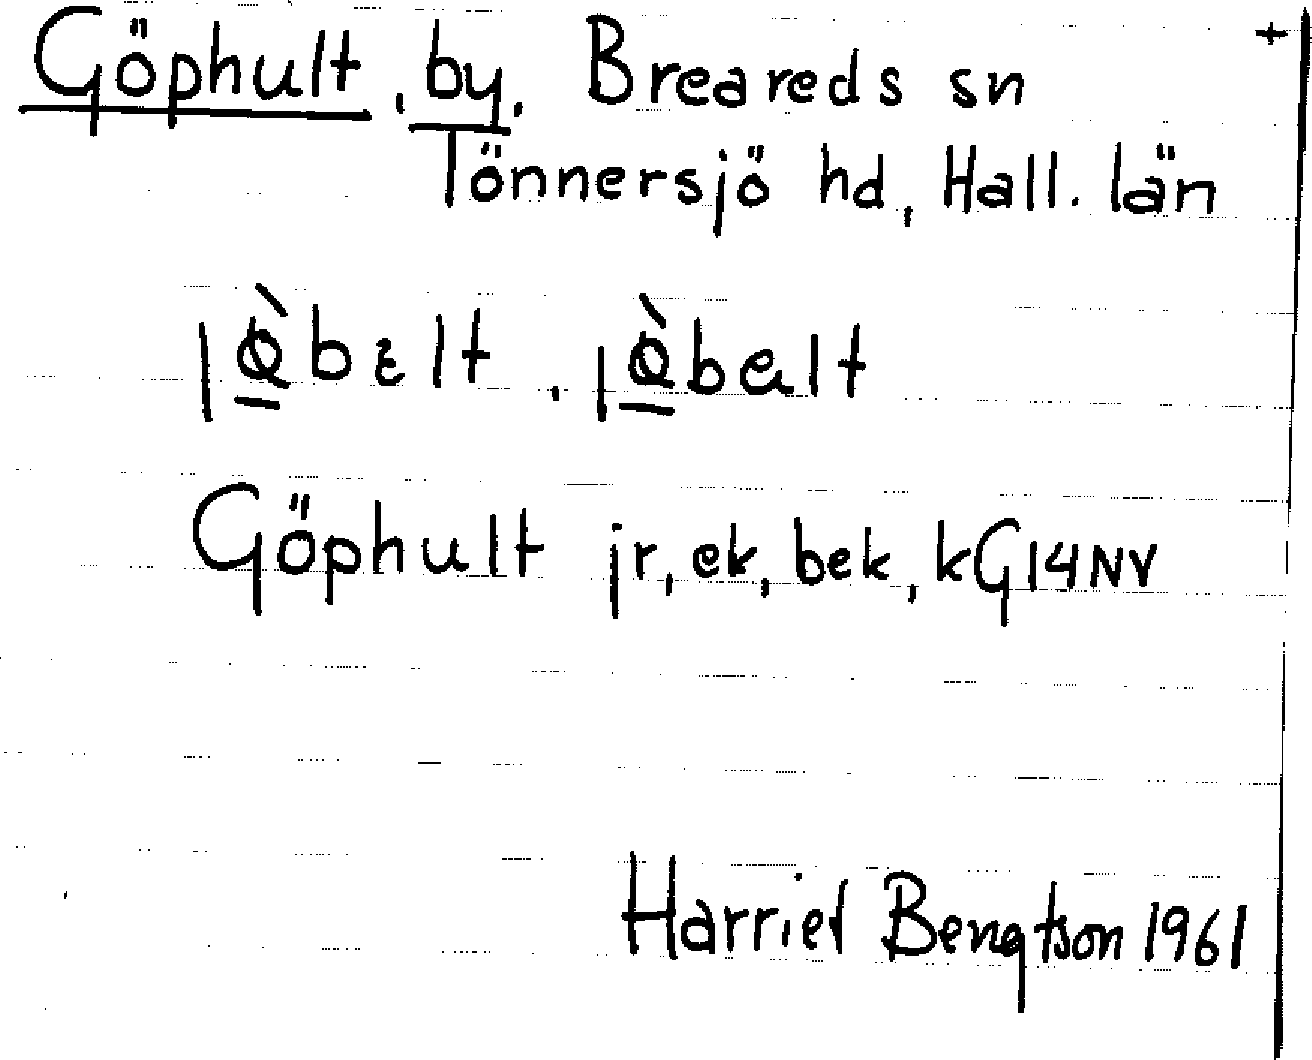 Göphult, by. Breareds sn +
Tönnersjö hd, Hall. län
Göphult jr, ek, bek, kG14NV
Harriet Bengtson 1961